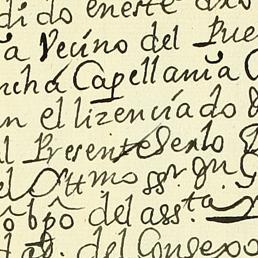 dido eneste
a Vecino del Pue
ncha Capellania
n el lizenciado
l Presente Se lo
el Ill.mo ss.r Jn.
ôbpô del ass.ta
del Consexo